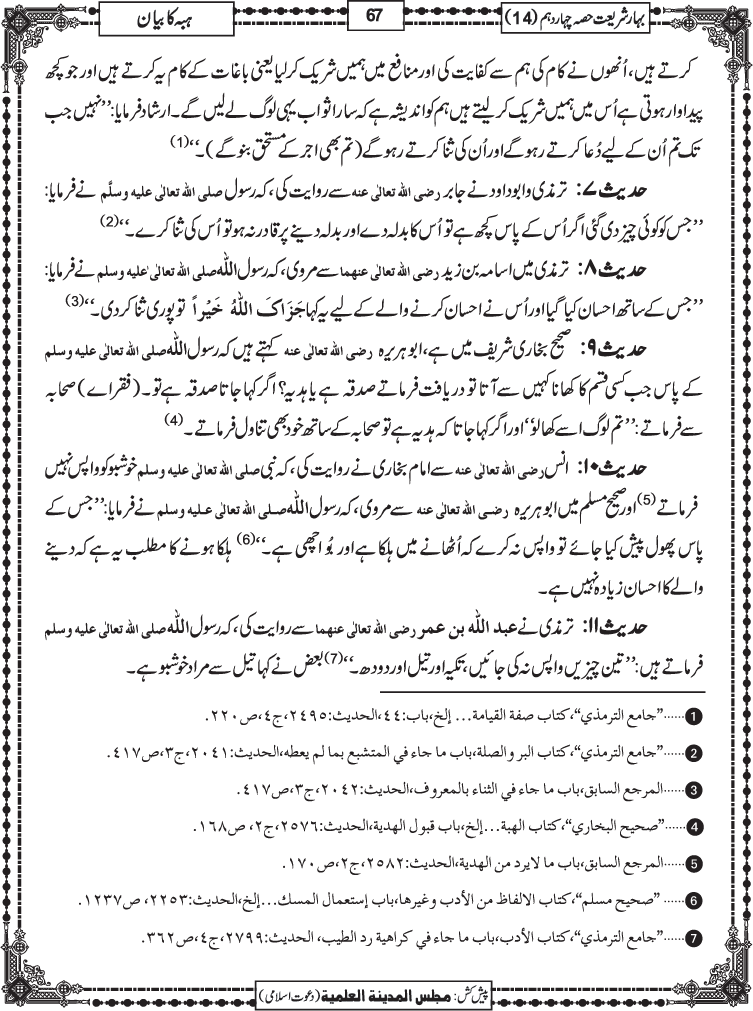 بہار شریعت حصہ چہاردہم (14)
67
ہبہ کا بیان
کرتے ہیں، اُنھوں نے کام کی ہم سے کفایت کی اور منافع میں ہمیں شریک کر لیا یعنی باغات کے کام یہ کرتے ہیں اور جو کچھ
پیداوار ہوتی ہے اُس میں ہمیں شریک کر لیتے ہیں ہم کو اندیشہ ہے کہ سارا ثواب یہی لوگ لے لیں گے۔ ارشاد فرمایا: ’’نہیں جب
تک تم اُن کے لیے دُعا کرتے رہو گے اور اُن کی ثنا کرتے رہو گے (تم بھی اجر کے مستحق بنو گے)۔‘‘(1)
حدیث ۷: ترمذی وابوداود نے جابر رضی اللہ تعالٰی عنہ سے روایت کی، کہ رسول صلی اللہ تعالٰی علیہ وسلَّم نے فرمایا:
’’جس کو کوئی چیز دی گئی اگر اُس کے پاس کچھ ہے تو اُس کا بدلہ دے اور بدلہ دینے پر قادر نہ ہو تو اُس کی ثنا کرے۔‘‘(2)
حدیث ۸: ترمذی میں اسامہ بن زید رضی اللہ تعالٰی عنھما سے مروی، کہ رسول اللہ صلی اللہ تعالٰی علیہ وسلم نے فرمایا:
’’جس کے ساتھ احسان کیا گیا اور اُس نے احسان کرنے والے کے لیے یہ کہا جَزَاکَ اللہُ خَیْراً تو پوری ثنا کر دی۔‘‘(3)
حدیث ۹: صحیح بخاری شریف میں ہے، ابوہریرہ رضی اللہ تعالٰی عنہ کہتے ہیں کہ رسول اللہ صلی اللہ تعالٰی علیہ وسلم
کے پاس جب کسی قسم کا کھانا کہیں سے آتا تو دریافت فرماتے صدقہ ہے یا ہدیہ؟ اگر کہا جاتا صدقہ ہے تو۔ (فقراے) صحابہ
سے فرماتے: ’’تم لوگ اسے کھالو‘‘ اور اگر کہا جاتا کہ ہدیہ ہے تو صحابہ کے ساتھ خود بھی تناول فرماتے۔(4)
حدیث ۱۰: انس رضی اللہ تعالٰی عنہ سے امام بخاری نے روایت کی، کہ نبی صلی اللہ تعالٰی علیہ وسلم خوشبو کو واپس نہیں
فرماتے(5) اور صحیح مسلم میں ابوہریرہ رضی اللہ تعالٰی عنہ سے مروی، کہ رسول اللہ صلی اللہ تعالٰی علیہ وسلم نے فرمایا: ’’جس کے
پاس پھول پیش کیا جائے تو واپس نہ کرے کہ اُٹھانے میں ہلکا ہے اور بُو اچھی ہے۔‘‘(6) ہلکا ہونے کا مطلب یہ ہے کہ دینے
والے کا احسان زیادہ نہیں ہے۔
حدیث ۱۱: ترمذی نے عبد اللہ بن عمر رضی اللہ تعالٰی عنھما سے روایت کی، کہ رسول اللہ صلی اللہ تعالٰی علیہ وسلم
فرماتے ہیں: ’’تین چیزیں واپس نہ کی جائیں، تکیہ اور تیل اور دودھ۔‘‘(7) بعض نے کہا تیل سے مراد خوشبو ہے۔
1......”جامع الترمذي“،كتاب صفة القيامة... إلخ،باب:٤٤،الحديث:٢٤٩٥،ج٤،ص٢٢٠.
2......”جامع الترمذي“، كتاب البر والصلة،باب ما جاء في المتشبع بما لم يعطه،الحديث:٢٠٤١،ج٣،ص٤١٧.
3......المرجع السابق،باب ما جاء في الثناء بالمعروف،الحديث:٢٠٤٢،ج٣،ص٤١٧.
4......”صحيح البخاري“، كتاب الهبة...إلخ،باب قبول الهدية،الحديث:٢٥٧٦،ج٢، ص١٦٨.
5......المرجع السابق،باب ما لايرد من الهدية،الحديث:٢٥٨٢،ج٢،ص١٧٠.
6......”صحيح مسلم“، كتاب الالفاظ من الأدب وغيرها،باب إستعمال المسك...إلخ،الحديث:٢٢٥٣، ص١٢٣٧.
7......”جامع الترمذي“، كتاب الأدب،باب ما جاء في كراهية رد الطيب، الحديث:٢٧٩٩،ج٤،ص٣٦٢.
پیش کش: مجلس المدینة العلمیة (دعوت اسلامی)